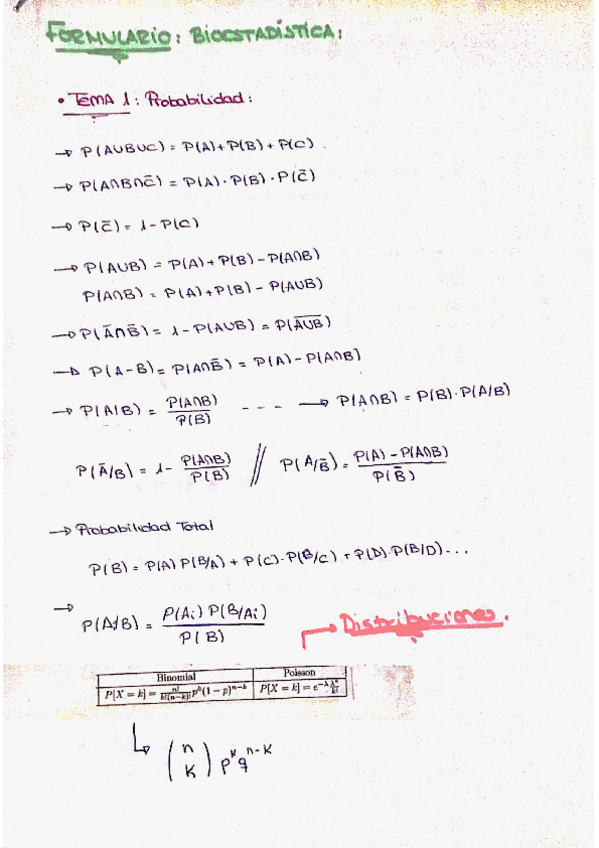 FORMULARIO: BIOESTADÍSTICA:
• TEMA 1: Probabilidad:
→ P(AUBUC) = P(A)+P(B)+P(C).
→ P(A∩B∩C̄) = P(A)·P(B)·P(C̄)
→ P(C̄) = 1-P(C)
→ P(AUB) = P(A)+P(B)-P(A∩B)
P(A∩B) = P(A)+P(B)-P(AUB)
→ P(Ā∩B̄) = 1-P(AUB) = P(\overline{AUB})
→ P(A-B) = P(A∩B̄) = P(A)-P(A∩B)
→ P(A|B) = P(A∩B)/P(B) - - - → P(A∩B) = P(B)·P(A/B)
P(Ā/B) = 1- P(A∩B)/P(B) // P(A/B̄) = P(A)-P(A∩B)/P(B̄)
→ Probabilidad Total
P(B) = P(A) P(B/A) + P(C)·P(B/C) + P(D)·P(B/D)...
→ P(A/B) = P(Ai) P(B/Ai)/P(B)
→ Distribuciones.
Binomial Poisson
P[X = k] = n!/k!(n−k)! p^k(1 − p)^{n−k} P[X = k] = e^{−λ} λ^k/k!
↳ (n k) p^k q^{n-k}